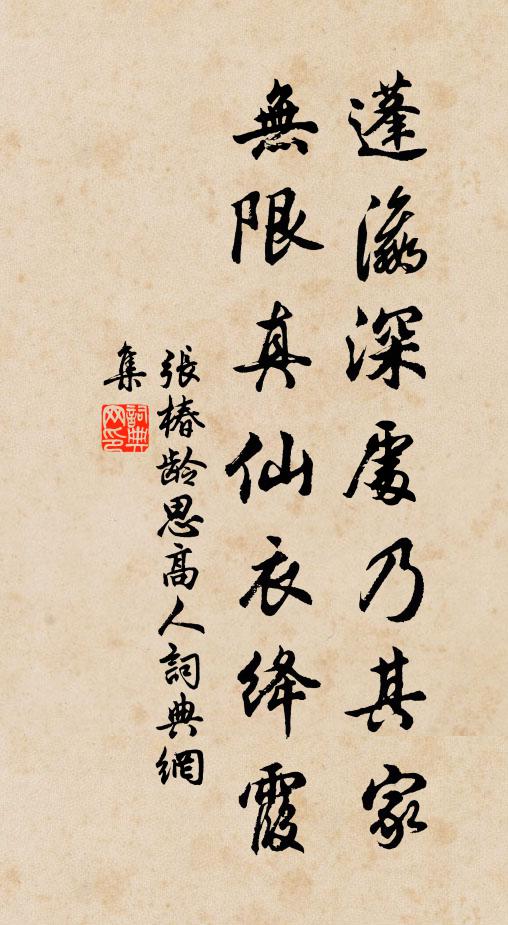 蓬瀛深處乃其家
無限真仙衣絳霞
張椿龄思高人詞典網
集
詞典
网印